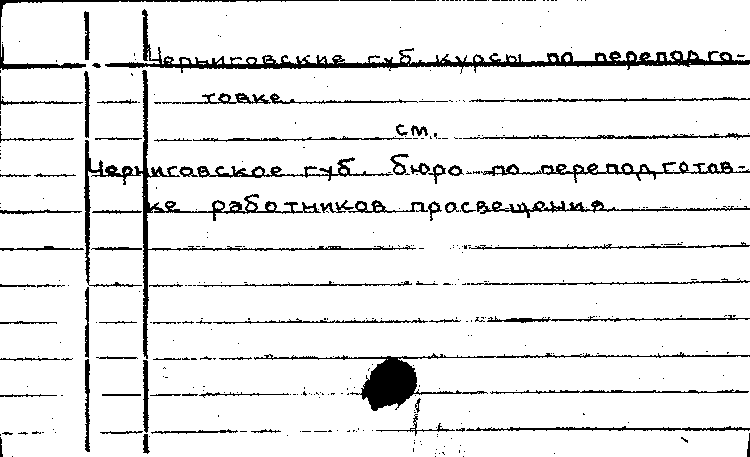 Черниговские губ. курсы по переподго-
товке.
см.
Черниговское губ. бюро по переподготов-
ке работников просвещения